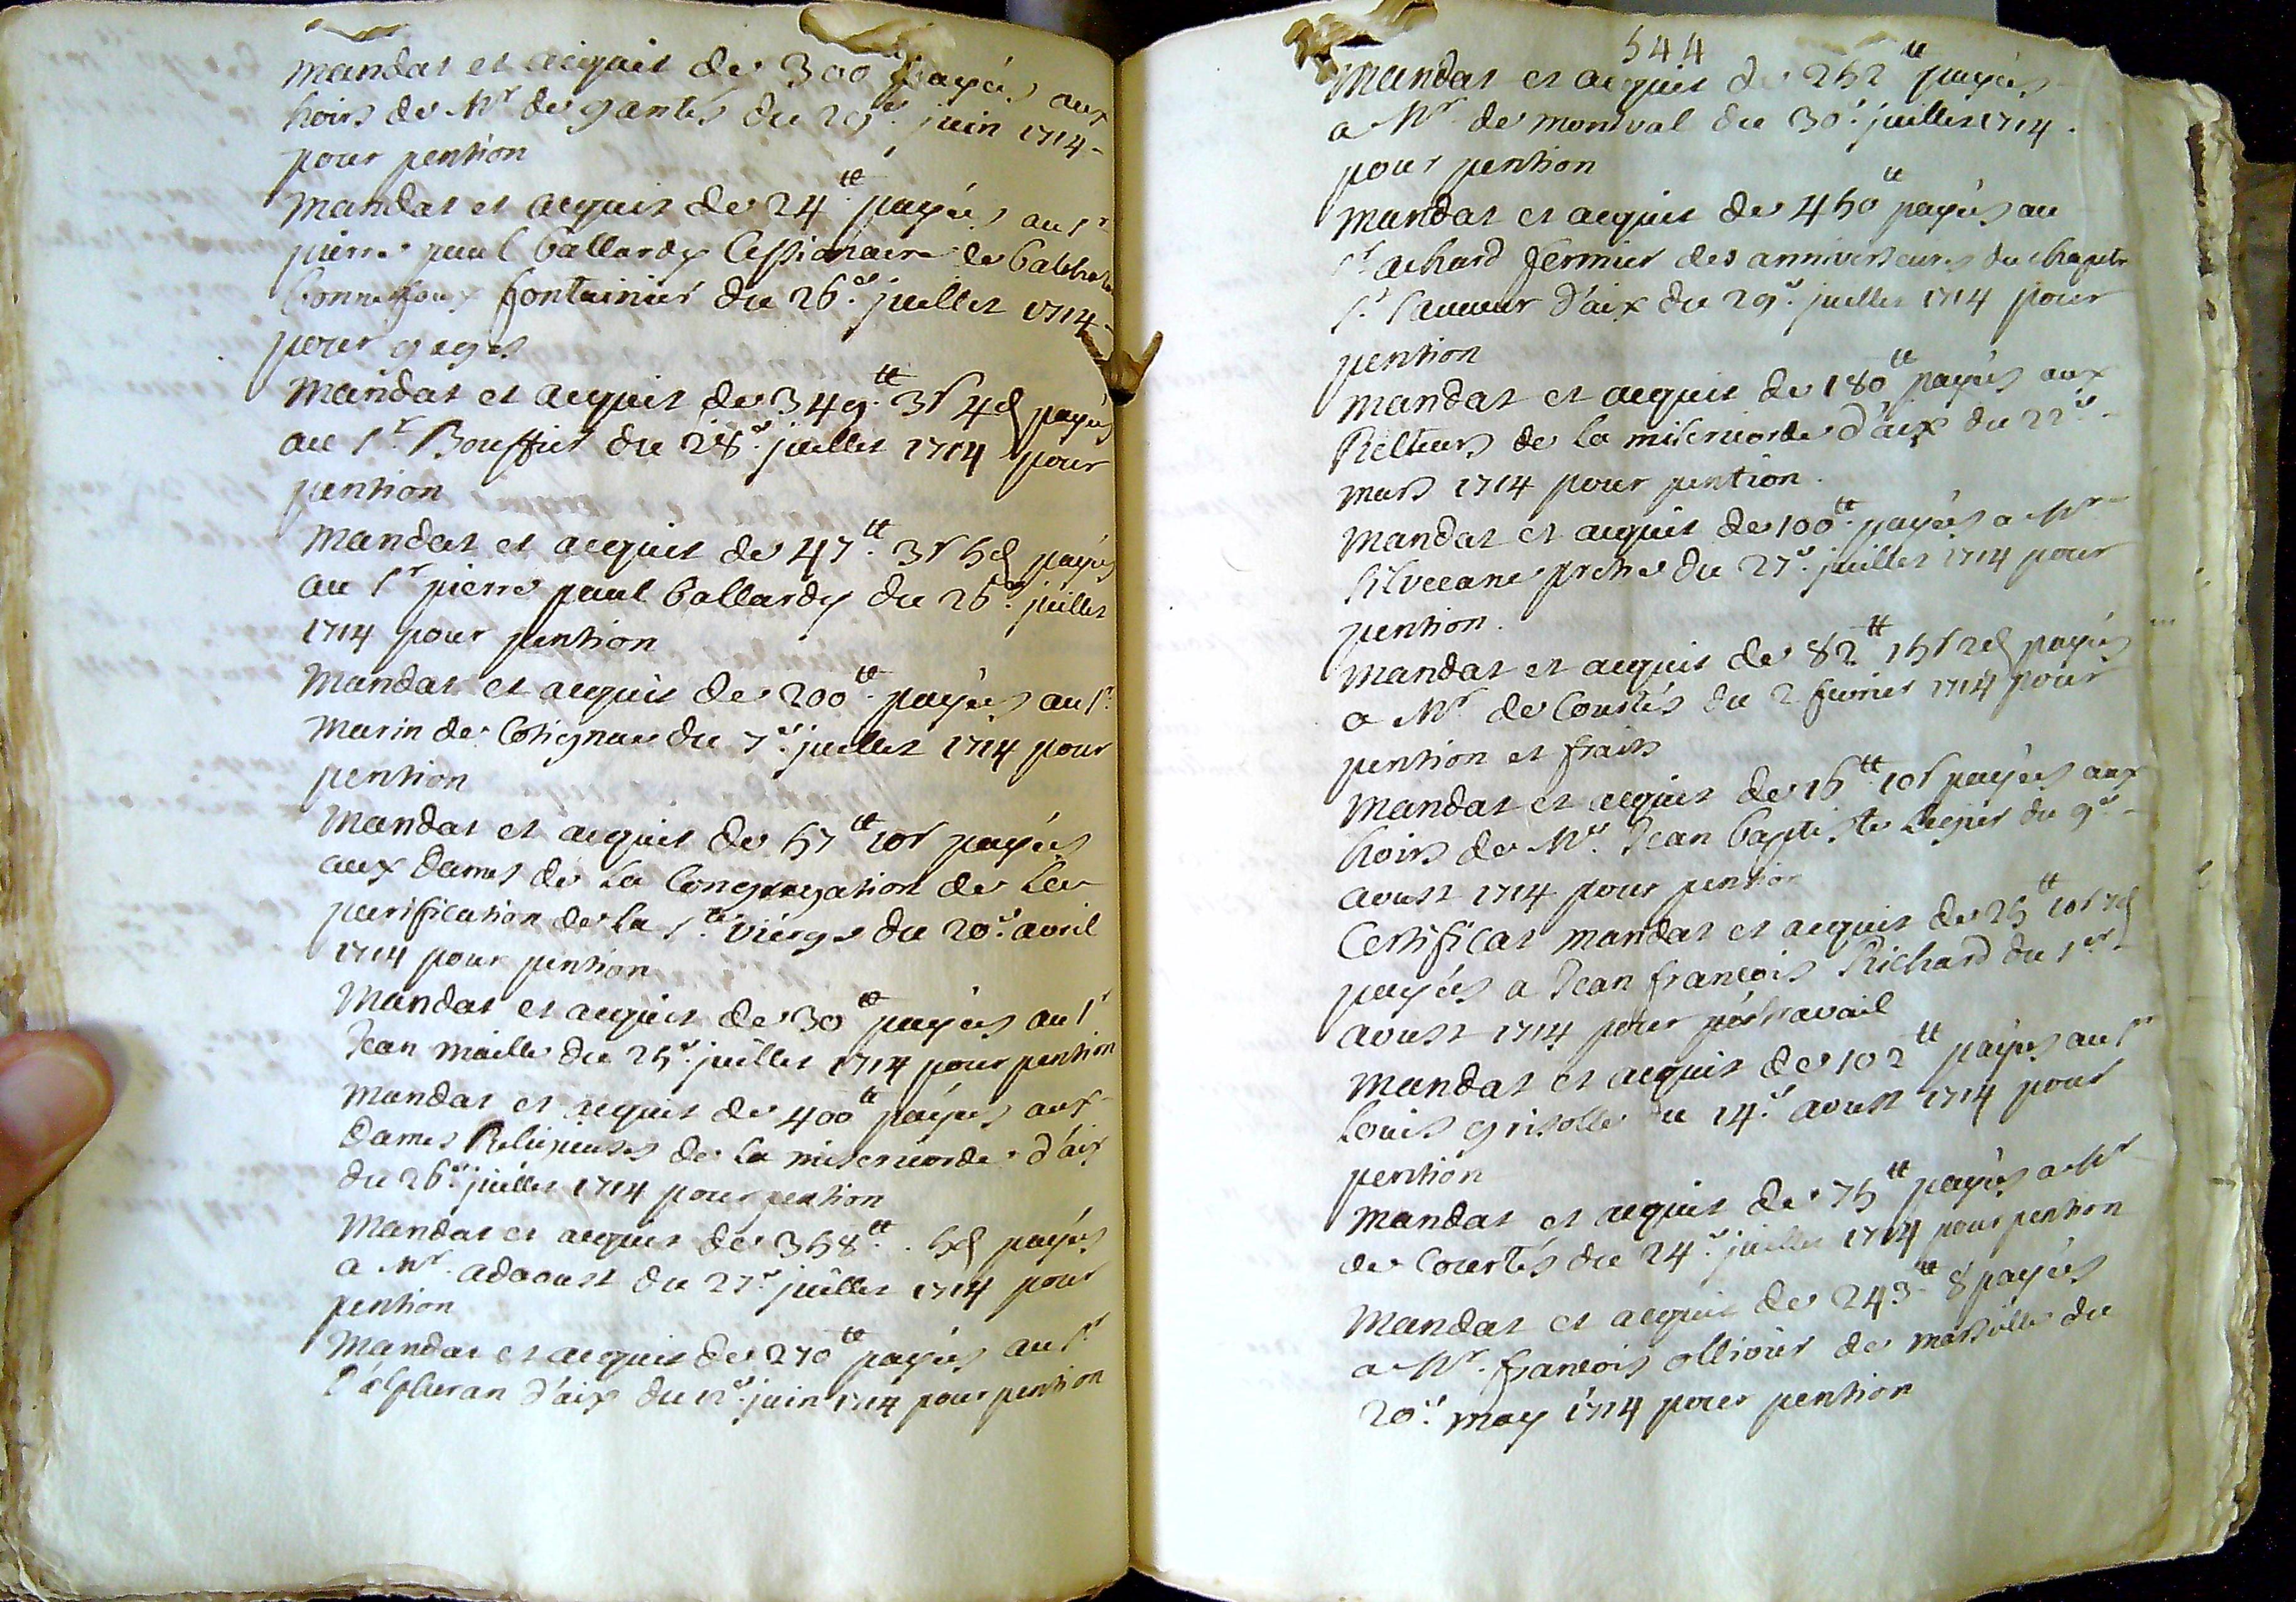 Mandat et acquit de 300 payés aux
hoirs de Mr de gantés du 29e juin 1714
pour pention
Mandat et acquit de 24tt payés au sr
pierre paul ballardy Cessionaire de
bonnefoux fontainier du 26e juillet 1714
pour gages
Mandat et acquit de 349tt 3s 4d payés
au sr Bouffier du 28e juillet 1714 pour
pention
Mandat et acquit de 47tt 3s 5d payés
au sr pierre paul ballardy du 26e juillet
1714 pour pention
Mandat et acquit de 200tt payés au sr
Marin de Cotignac du 7e juillet 1714 pour
pention
Mandat et acquit de 57tt 10s payés
aux dames de la Congregation de la
purification de la ste viérge du 20e avril
1714 pour pention
Mandat et acquit de 30tt payés au sr
Jean maille du 25e juillet 1714 pour pention
Mandat et acquit de 400tt payés aux
dames Religieuses de la misericorde d'aix
du 26e juillet 1714 pour pention
Mandat et acquit de 358tt 5d payés
a Mr adaoust du 27e juillet 1714 pour
pention
Mandat et acquit de 270tt payés au sr
d'aix du 12e juin 1714 pour pention
544
Mandat et acquit de 252tt payés
a Mr de montval du 30e juillet 1714.
pour pention
Mandat et acquit de 450tt payés au
sr achard fermier des anniverseires du chapitre
st sauveur d'aix du 29e juillet 1714 pour
pention
Mandat et acquit de 180tt payés aux
Recteurs de la misericorde d'aix du 22e
mars 1714 pour pention.
Mandat et acquit de 100tt payés a Mre
silvecane pretre du 27e juillet 1714 pour
pention.
Mandat et acquit de 82tt 15s 2d payés
a Mr de Courtés du 2 fevrier 1714 pour
pention et frais
Mandat et acquit de 16tt 10s payés aux
hoirs de Me Jean baptiste Legier du 9e
avust 1714 pour pention
Certificat mandat et acquit de 25tt 10s 7d
payés a Jean francois Richard du 1er
avust 1714 pour travail
Mandat et acquit de 102tt payés au sr
Louis grisolle du 14e avust 1714 pour
pention
Mandat et acquit de 75tt payés a Mr
de Courtés du 24e juillet 1714 pour pention
Mandat et acquit de 243tt 8 payés
a Mr francois ollivier de marseille du
20e may 1714 pour pention